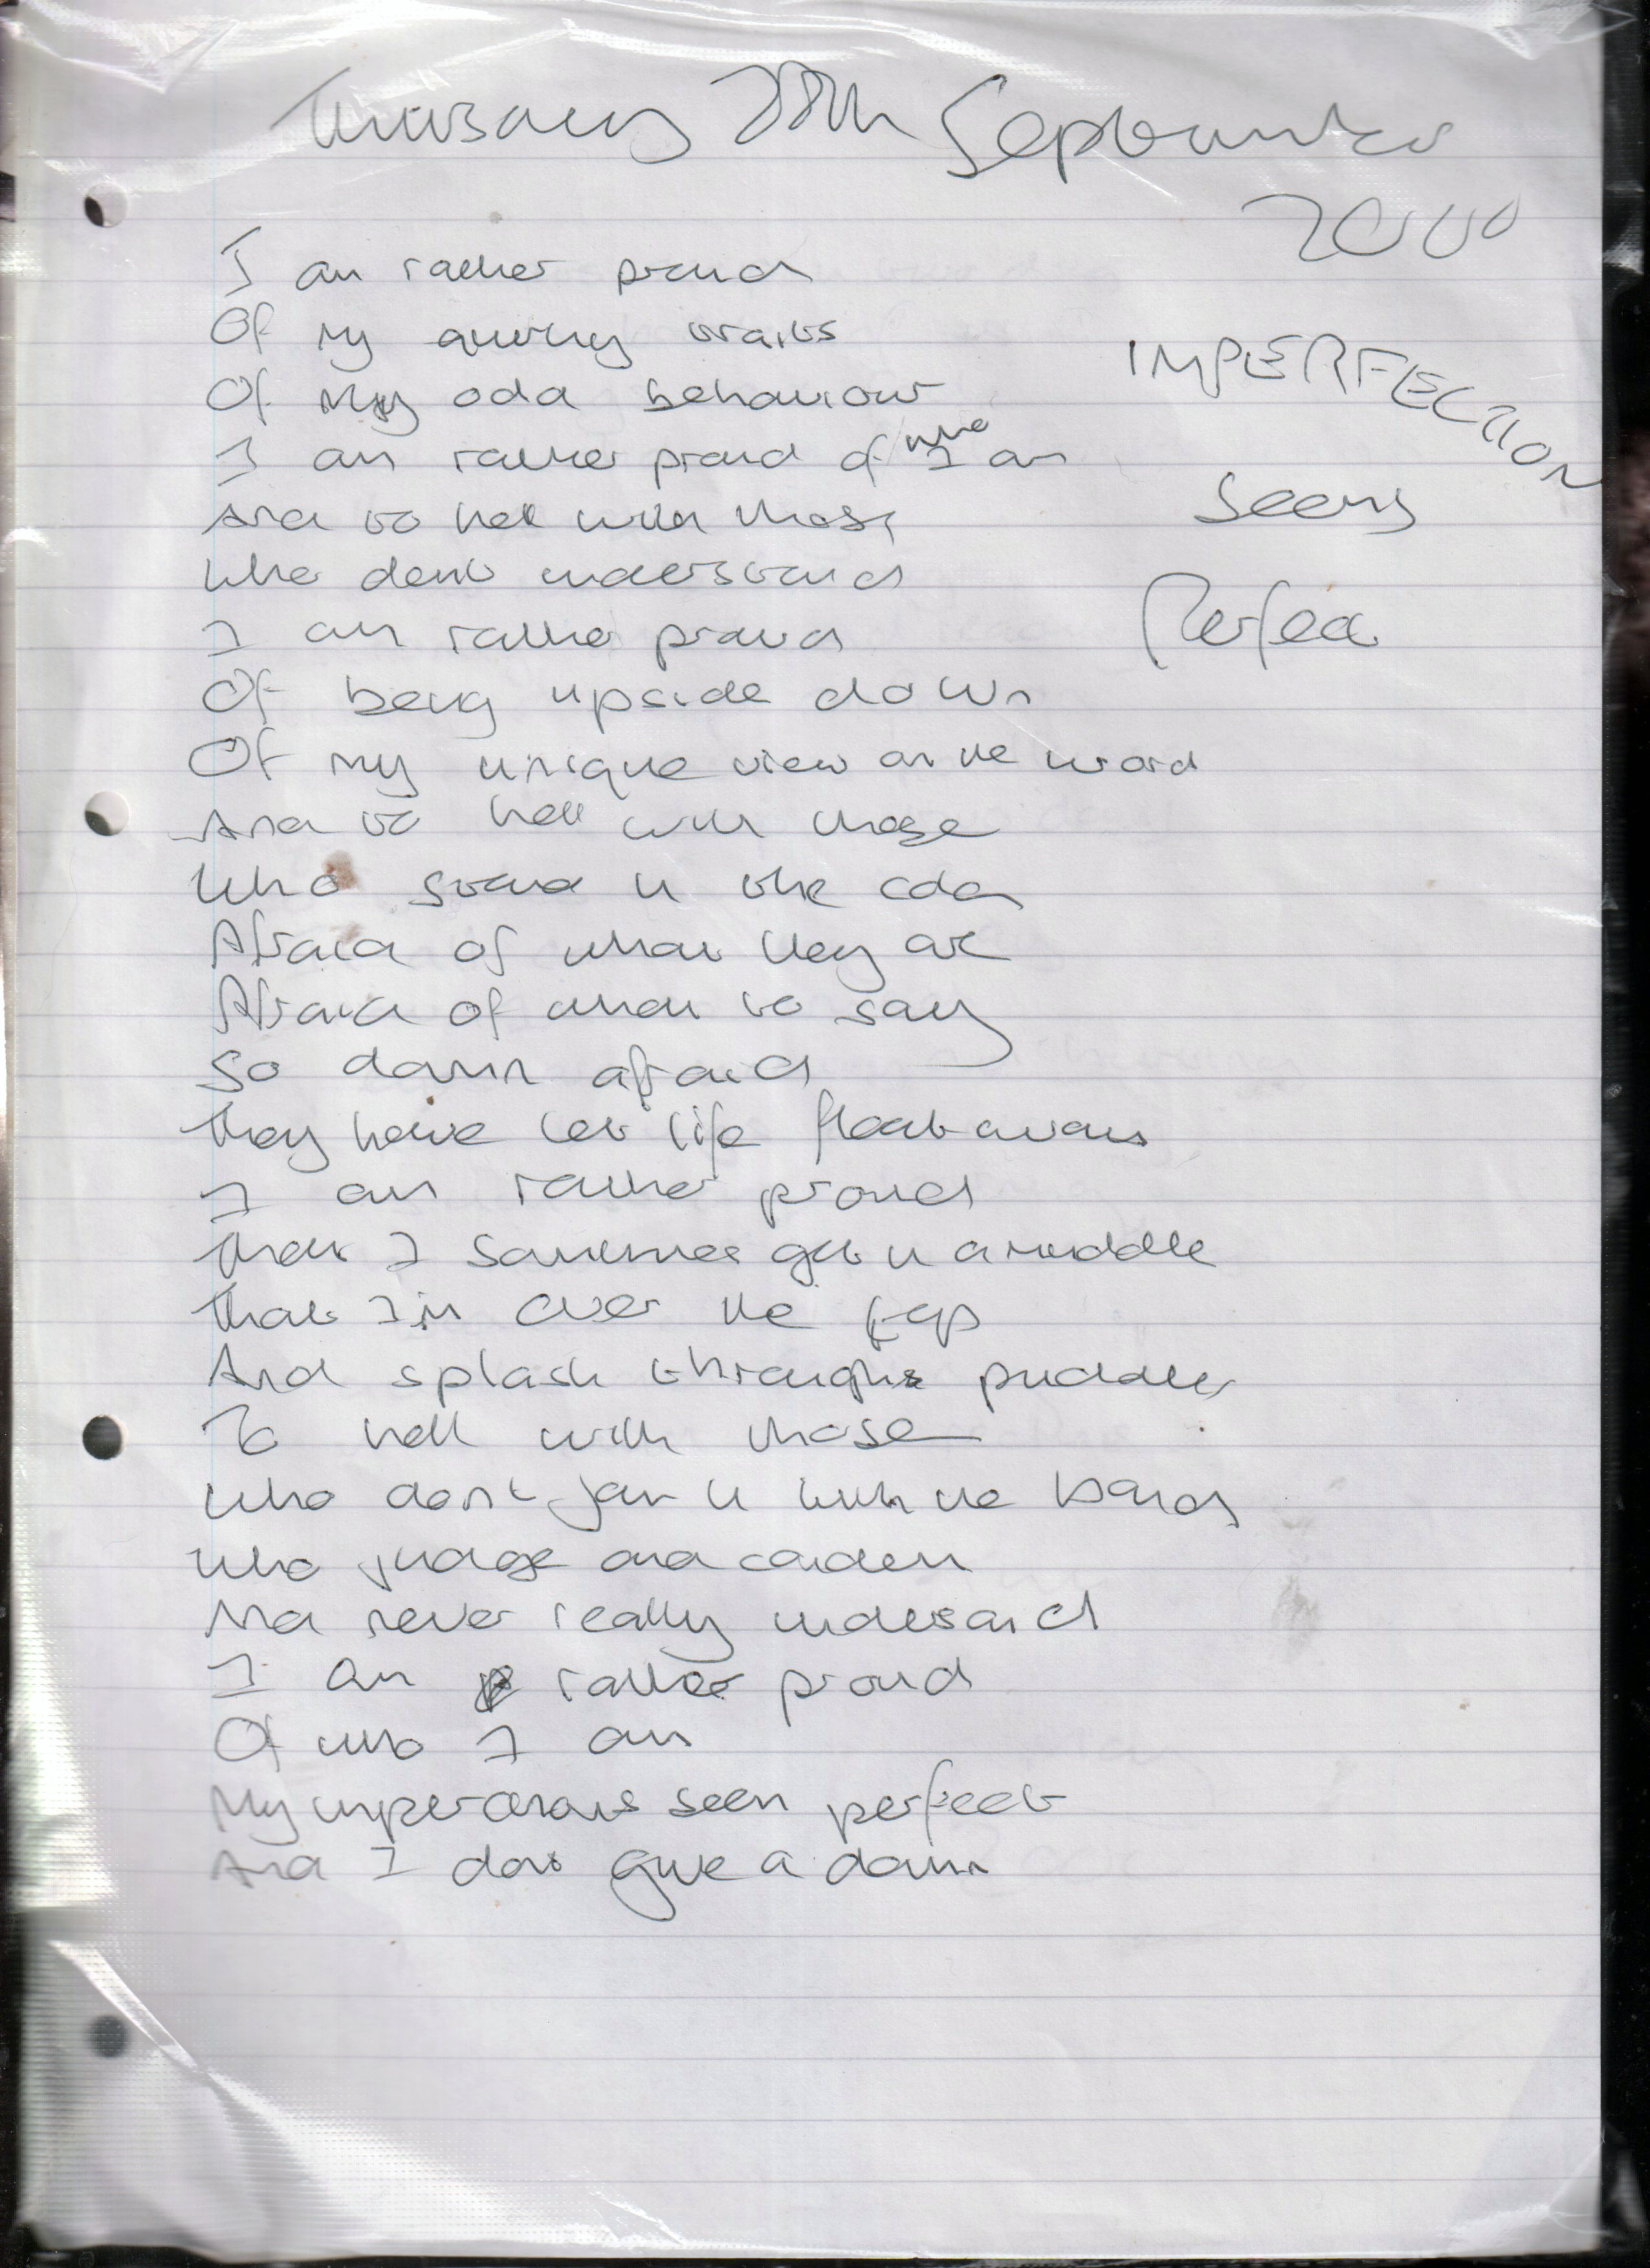 Thursday 28th September
2000
IMPERFECTION
Seems
Perfect
I am rather proud
Of my quirky traits
Of my odd behaviour
I am rather proud of who I am
And to hell with those
Who dont understand
I am rather proud
Of being upside down
Of my unique view on the world
And to hell with those
Who stand in the cold
Afraid of what they are
Afraid of what to say
So damn afraid
They have let life float away
I am rather proud
That I sometimes get in a muddle
That I'm over the top
And splash through puddles
To hell with those
Who don't join in with the band
Who judge and condem
And never really undersand
I am rather proud
Of who I am
My imperctions seem perfect
And I dont give a damn